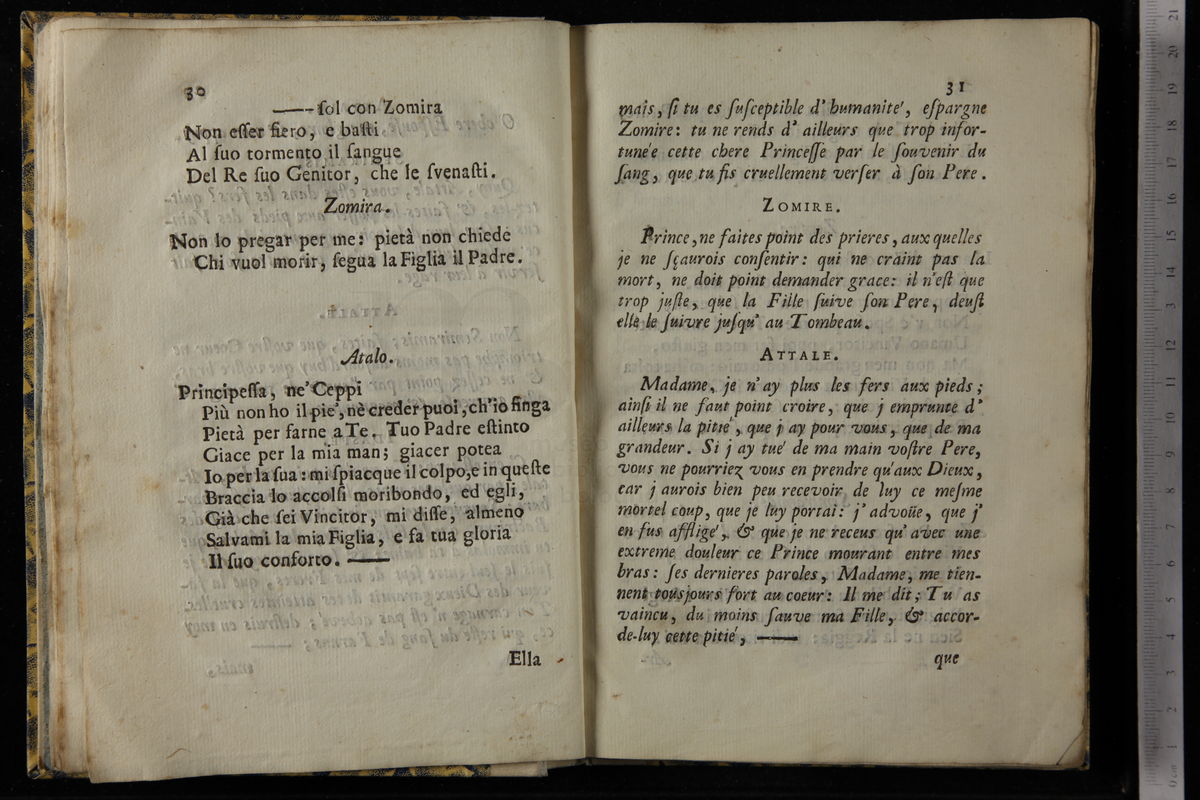 30
——ſol con Zomira
Non eſſer fiero, e baſti
Al ſuo tormento il ſangue
Del Re ſuo Genitor, che le ſvenaſti.
Zomira.
Non lo pregar per me: pietà non chiede
Chi vuol morir, ſegua la Figlia il Padre.
Atalo.
Principeſſa, ne' Ceppi
Più non ho il pie', nè creder puoi, ch'io finga
Pietà per farne a Te. Tuo Padre eſtinto
Giace per la mia man; giacer potea
Io per la ſua: mi ſpiacque il colpo, e in queſte
Braccia lo accolſi moribondo, ed egli,
Già che ſei Vincitor, mi diſſe, almeno
Salvami la mia Figlia, e fa tua gloria
Il ſuo conforto. ——
Ella
31
mais, ſi tu es ſuſceptible d' humanite', eſpargne
Zomire: tu ne rends d' ailleurs que trop infor-
tune'e cette chere Princeſſe par le ſouvenir du
ſang, que tu fis cruellement verſer à ſon Pere.
ZOMIRE.
Prince, ne faites point des prieres, aux quelles
je ne ſçaurois conſentir: qui ne craint pas la
mort, ne doit point demander grace: il n'eſt que
trop juſte, que la Fille ſuive ſon Pere, deuſt
elle le ſuivre juſqu' au Tombeau.
ATTALE.
Madame, je n' ay plus les fers aux pieds;
ainſi il ne faut point croire, que j emprunte d'
ailleurs la pitie', que j ay pour vous, que de ma
grandeur. Si j ay tué de ma main voſtre Pere,
vous ne pourriez vous en prendre qu'aux Dieux,
car j aurois bien peu recevoir de luy ce meſme
mortel coup, que je luy portai: j' advoüe, que j'
en fus afflige', & que je ne receus qu' avec une
extreme douleur ce Prince mourant entre mes
bras: ſes dernieres paroles, Madame, me tien-
nent tousjours fort au coeur: Il me dit; Tu as
vaincu, du moins ſauve ma Fille, & accor-
de-luy cette pitié, ——
que